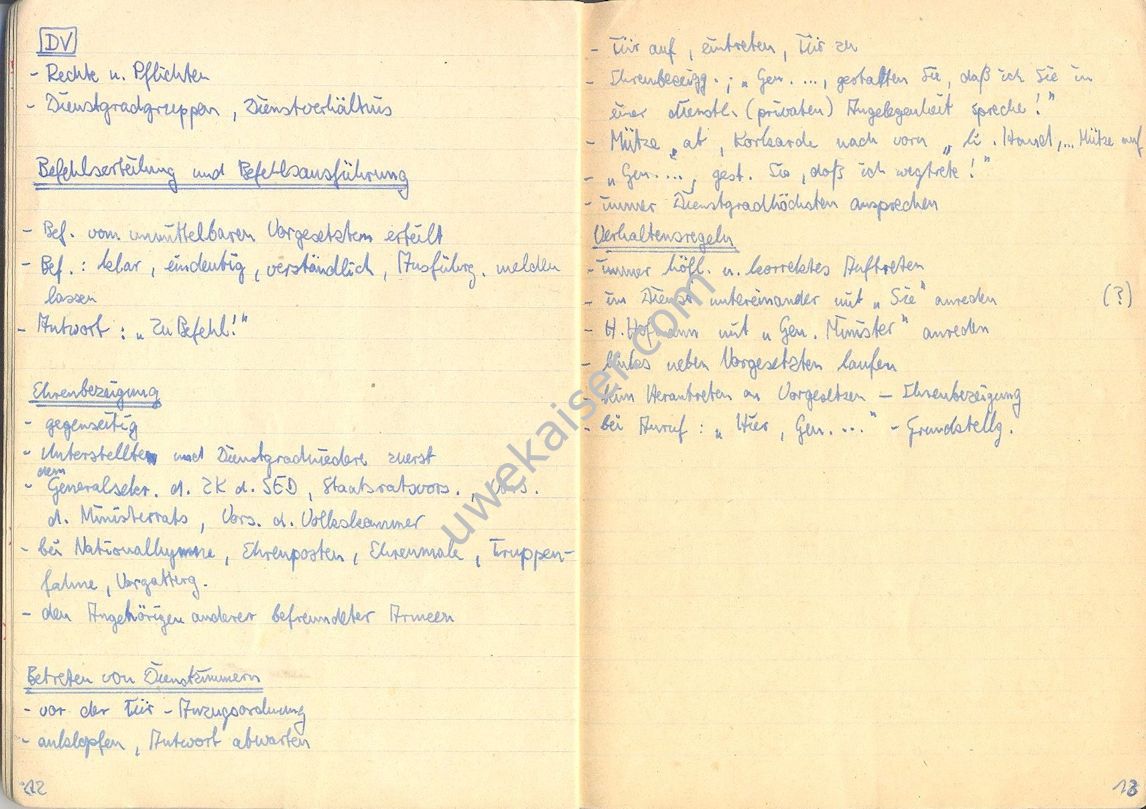 DV
- Rechte u. Pflichten
- Dienstgradgruppen, Dienstverhältnis
Befehlserteilung und Befehlsausführung
- Bef. vom unmittelbaren Vorgesetztem erteilt
- Bef.: klar, eindeutig, verständlich, Ausführg. melden
lassen
- Antwort: „Zu Befehl!"
Ehrenbezeigung
- gegenseitig
- Unterstellte und Dienstgradniedere zuerst
- dem Generalsekr. d. ZK d. SED, Staatsratsvors., Vors.
d. Ministerrats, Vors. d. Volkskammer
- bei Nationalhymne, Ehrenposten, Ehrenmale, Truppen-
fahne, Vergatterg.
- den Angehörigen anderer befreundeter Armeen
Betreten von Dienstzimmern
- vor der Tür - Anzugsordnung
- anklopfen, Antwort abwarten
12
- Tür auf, eintreten, Tür zu
- Ehrenbezeigg.; „Gen. ..., gestatten Sie, daß ich Sie in
einer dienstl. (privaten) Angelegenheit spreche!"
- Mütze ab, Korkarde nach vorn, li. Hand,... Mütze auf
- „Gen. ..., gest. Sie, daß ich wegtrete!"
- immer Dienstgradhöchsten ansprechen
Verhaltensregeln
- immer höfl. u. korrektes Auftreten
- im Dienst untereinander mit „Sie" anreden (?)
- H. Hofmann mit „Gen. Minister" anreden
- links neben Vorgesetzten laufen
- beim Herantreten an Vorgesetzen - Ehrenbezeigung
- bei Anruf: „Hier, Gen. ..." - Grundstellg.
13
uwekaiser.com